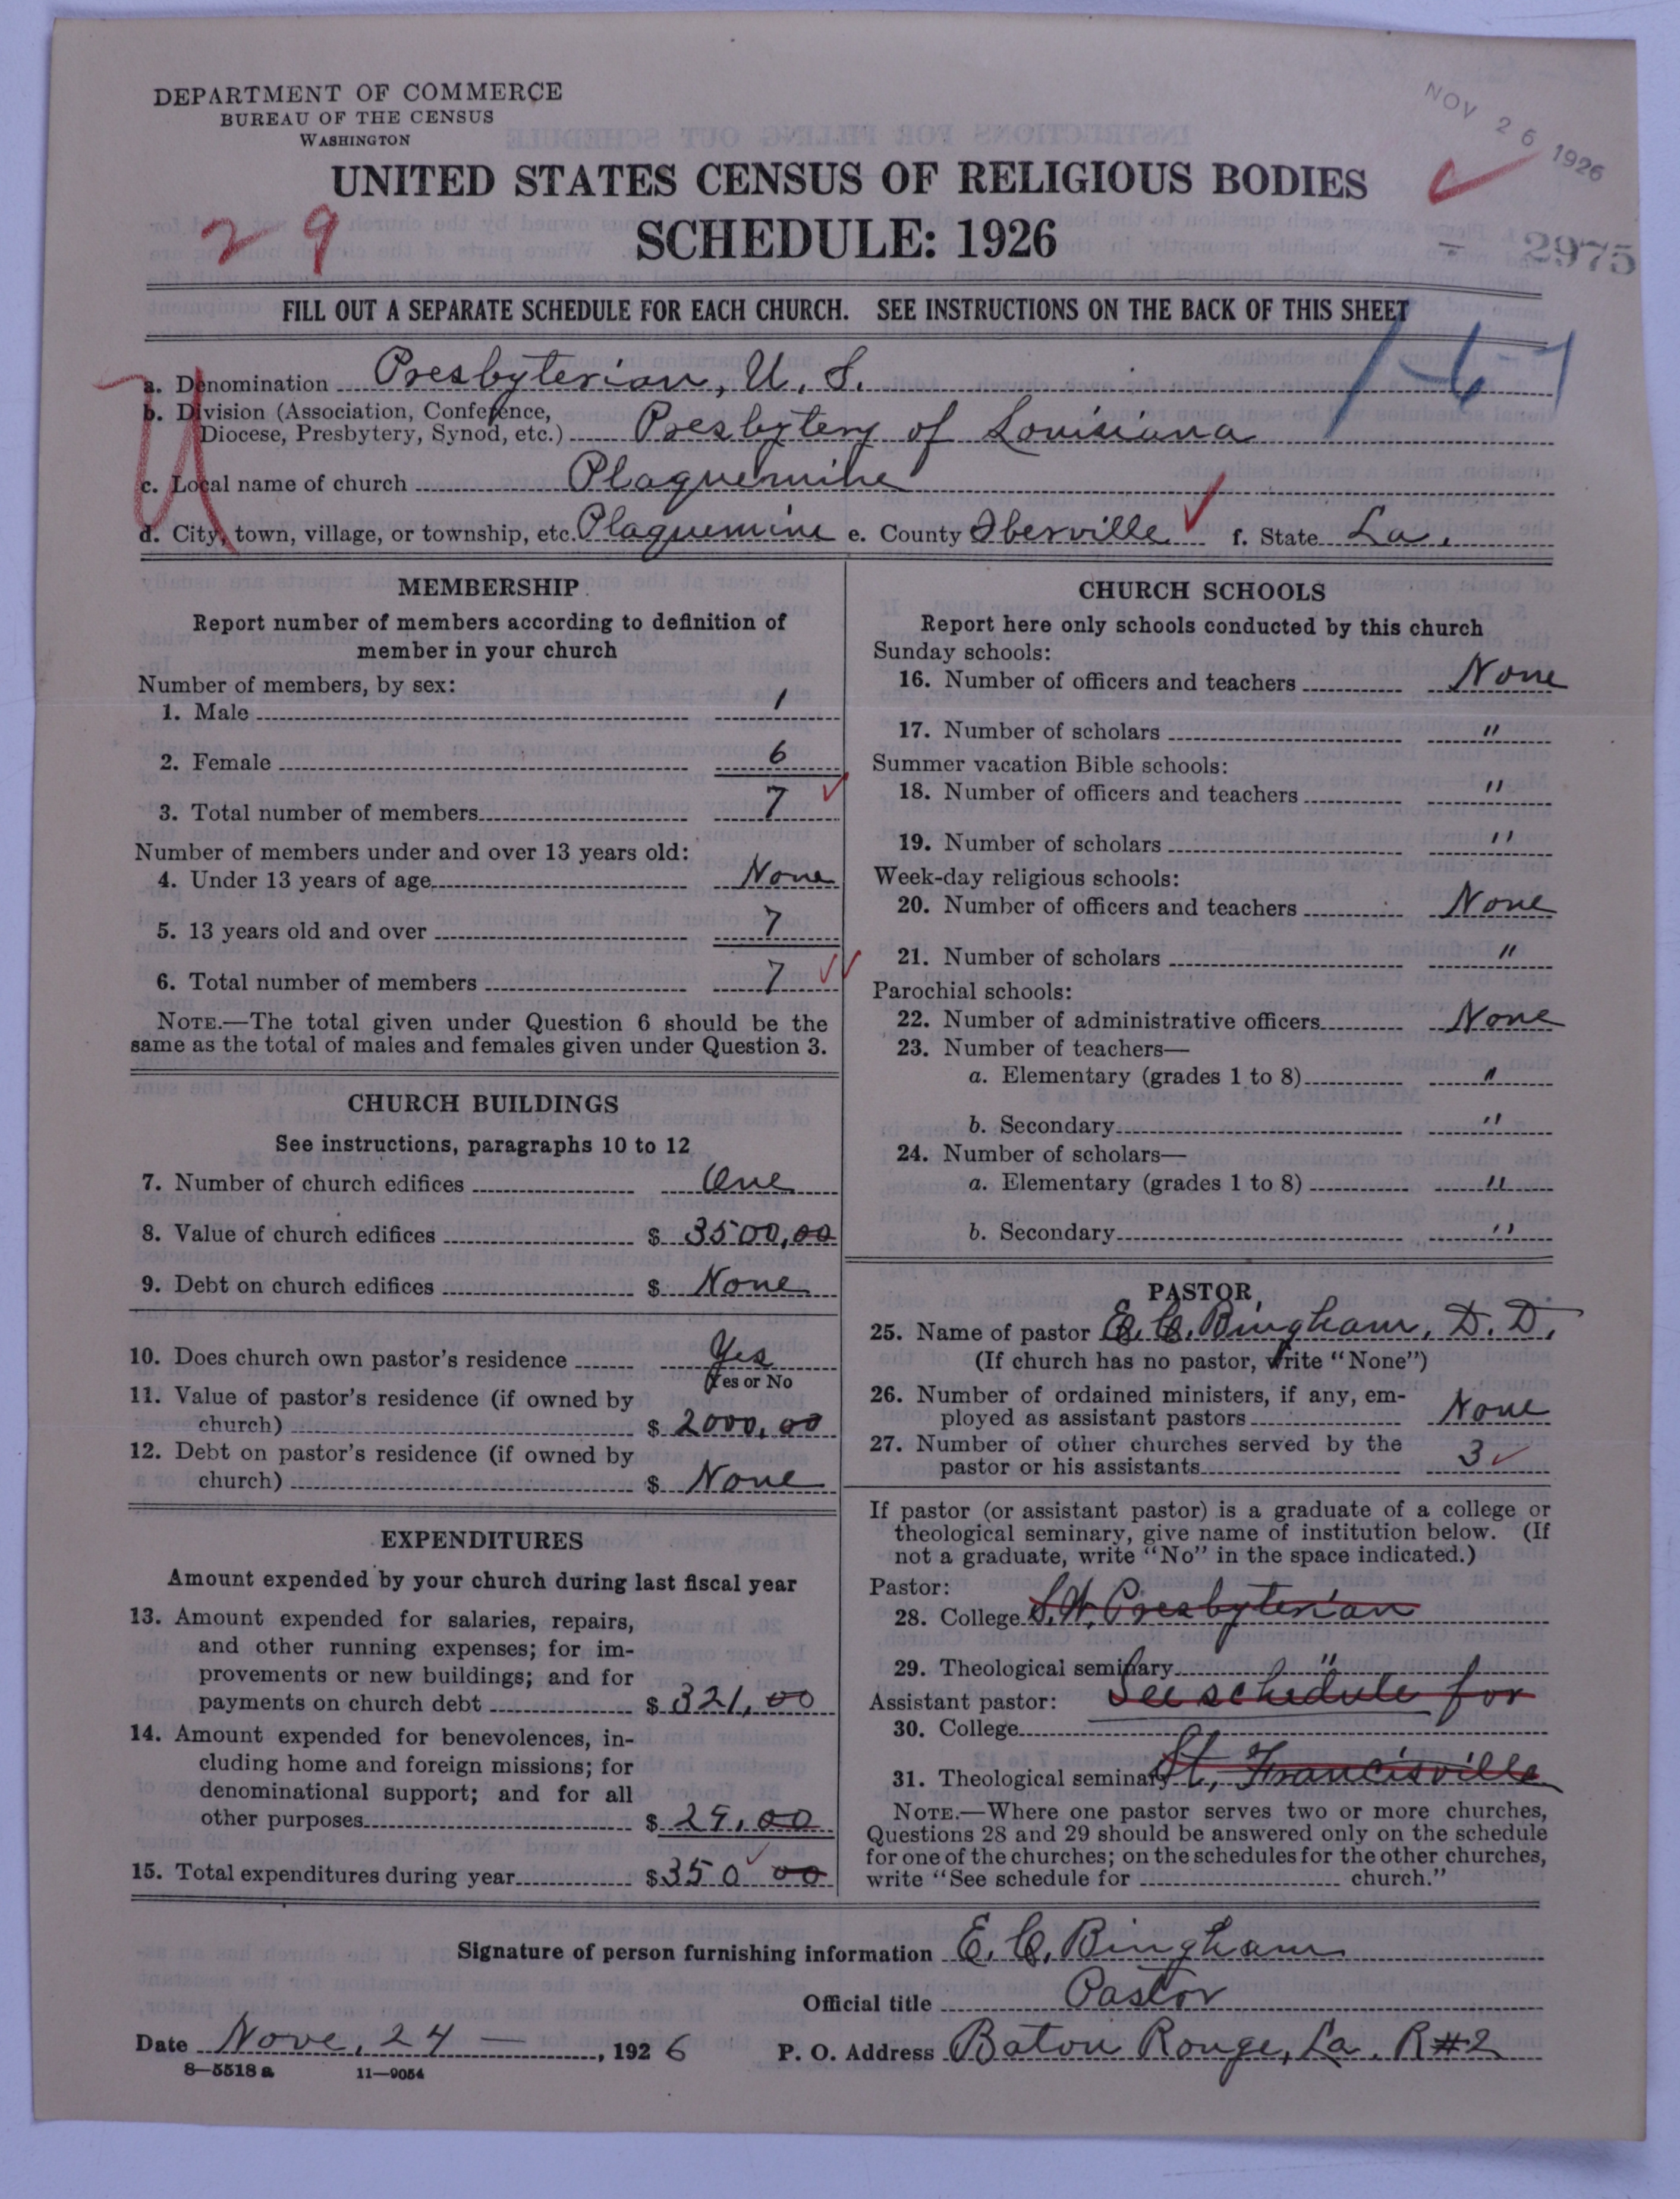 DEPARTMENT OF COMMERCE
BUREAU OF THE CENSUS
WASHINGTON
NOV 26 1926
UNITED STATES CENSUS OF RELIGIOUS BODIES
SCHEDULE: 1926
29
2975
FILL OUT A SEPARATE SCHEDULE FOR EACH CHURCH. SEE INSTRUCTIONS ON THE BACK OF THIS SHEET
167
a. Denomination Presbyterian, U. S.
b. Division (Association, Conference, Diocese, Presbytery, Synod, etc.) Presbytery of Louisiana
c. Local name of church Plaquemine
d. City, town, village, or township, etc. Plaquemine e. County Iberville f. State La.
MEMBERSHIP
Report number of members according to definition of
member in your church
Number of members, by sex:
1. Male 1
2. Female 6
3. Total number of members 7
Number of members under and over 13 years old:
4. Under 13 years of age None
5. 13 years old and over 7
6. Total number of members 7
NOTE.—The total given under Question 6 should be the
same as the total of males and females given under Question 3.
CHURCH BUILDINGS
See instructions, paragraphs 10 to 12
7. Number of church edifices One
8. Value of church edifices $ 3500,00
9. Debt on church edifices $ None
10. Does church own pastor's residence Yes
Yes or No
11. Value of pastor's residence (if owned by
church) $ 2000,00
12. Debt on pastor's residence (if owned by
church) $ None
EXPENDITURES
Amount expended by your church during last fiscal year
13. Amount expended for salaries, repairs,
and other running expenses; for im-
provements or new buildings; and for
payments on church debt $ 321,00
14. Amount expended for benevolences, in-
cluding home and foreign missions; for
denominational support; and for all
other purposes $ 29,00
15. Total expenditures during year $ 350 00
CHURCH SCHOOLS
Report here only schools conducted by this church
Sunday schools:
16. Number of officers and teachers None
17. Number of scholars "
Summer vacation Bible schools:
18. Number of officers and teachers "
19. Number of scholars "
Week-day religious schools:
20. Number of officers and teachers None
21. Number of scholars "
Parochial schools:
22. Number of administrative officers None
23. Number of teachers—
a. Elementary (grades 1 to 8) "
b. Secondary "
24. Number of scholars—
a. Elementary (grades 1 to 8) "
b. Secondary "
PASTOR
25. Name of pastor E. C. Bingham, D. D.
(If church has no pastor, write "None")
26. Number of ordained ministers, if any, em-
ployed as assistant pastors None
27. Number of other churches served by the
pastor or his assistants 3
If pastor (or assistant pastor) is a graduate of a college or
theological seminary, give name of institution below. (If
not a graduate, write "No" in the space indicated.)
Pastor:
28. College S. W. Presbyterian
29. Theological seminary "
Assistant pastor: See schedule for
30. College
31. Theological seminary St. Francisville
NOTE.—Where one pastor serves two or more churches,
Questions 28 and 29 should be answered only on the schedule
for one of the churches; on the schedules for the other churches,
write "See schedule for church."
Signature of person furnishing information E. C. Bingham
Official title Pastor
Date Nove, 24 — , 1926 P. O. Address Baton Rouge, La. R#2
8—5518a 11—9054